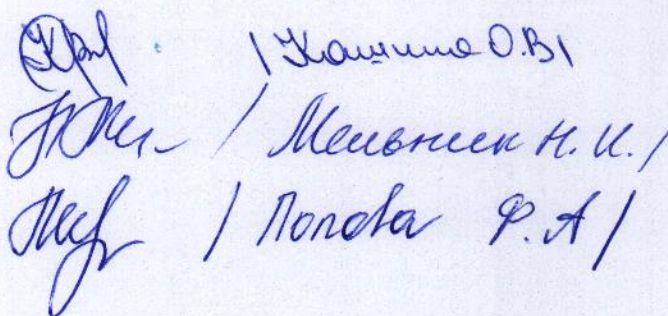 / Кашина О.В /
/ Мельник Н. И. /
/ Попова Ф. А /